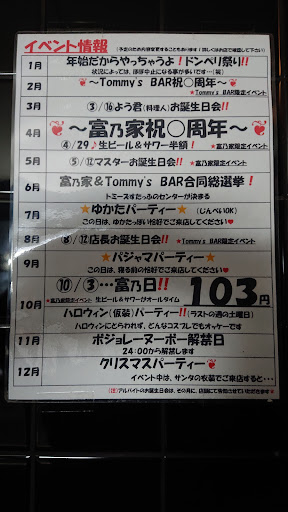 イベント情報 (予定のため内容変更することもあります!詳しくはお店で確認して下さい)
1月 年始だからやっちゃうよ!ドンペリ祭り!!
状況によっては、ほぼ中止になる事が多いです…(涙)
2月 ～Tommy's BAR祝〇周年～
★Tommy's BAR限定イベント
3月 3/16よう君(料理人)お誕生日会!!
4月 ～富乃家祝〇周年～
4/29♪生ビール&サワー半額! ★富乃家限定イベント
5月 5/12マスターお誕生日会!! ★富乃家限定イベント
6月 富乃家&Tommy's BAR合同総選挙!
トミーズすたっふのセンターが決まる
7月 ★ゆかたパーティー★ (じんべいOK)
この日は、ゆかたっぽい恰好でご来店してください♥
8月 8/12店長お誕生日会!! ★Tommy's BAR限定イベント
9月 ★パジャマパーティー★
この日は、寝る前の恰好でご来店してください♥
10月 10/3…富乃日!! 103円
★富乃家限定イベント 生ビール&サワーオールタイム
ハロウィン(仮装)パーティー!!(ラストの週の土曜日)
ハロウィンにとらわれず、どんなコスプレでもオッケーです
11月 ボジョレーヌーボー解禁日
24:00から解禁します
12月 クリスマスパーティー♥
イベント中は、サンタの衣装でご来店すると・・・
(注)アルバイトのお誕生日会は、その月に、店舗にて告知させていただきます★